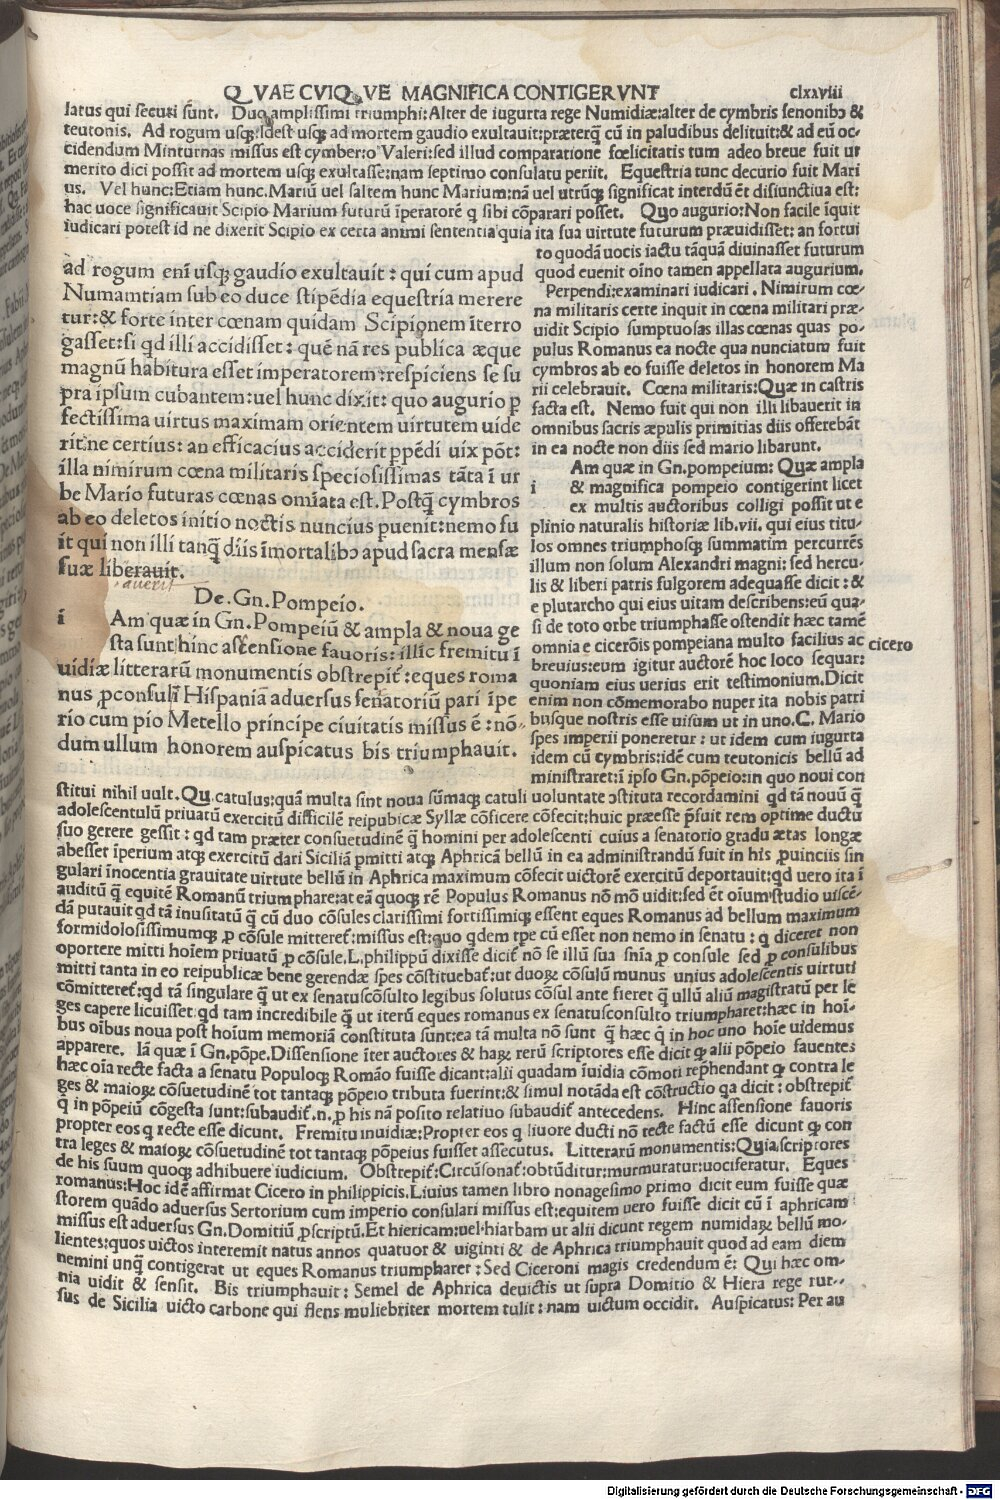 QVAE CVIQVE MAGNIFICA CONTIGERVNT clxxviii
latus qui secuti sunt. Duo amplissimi triumphi: Alter de iugurta rege Numidiæ: alter de cymbris senonibꝰ &
teutonis. Ad rogum usqꝫ. Idest usqꝫ ad mortem gaudio exultauit: præterqꝫ cū in paludibus delituit: & ad eū oc-
cidendum Minturnas missus est cymber: o Valeri: sed illud comparatione fœlicitatis tum adeo breue fuit ut
merito dici possit ad mortem usqꝫ exultasse: nam septimo consulatu periit. Equestria tunc decurio fuit Mari
us. Vel hunc: Etiam hunc. Mariū uel saltem hunc Marium: nā uel utrūqꝫ significat interdū et disiunctiua est:
hac uoce significauit Scipio Marium futurū īperatorē q sibi cōparari posset. Quo augurio: Non facile īquit
iudicari potest id ne dixerit Scipio ex certa animi sententia quia ita sua uirtute futurum præuidisset: an fortui
to quodā uocis iactu tāquā diuinasset futurum
quod euenit oīno tamen appellata augurium.
Perpendi: examinari iudicari. Nimirum cœ-
na militaris certe inquit in cœna militari præ-
uidit Scipio sumptuosas illas cœnas quas po-
pulus Romanus ea nocte qua nunciatum fuit
cymbros ab eo fuisse deletos in honorem Ma
rii celebrauit. Cœna militaris: Quæ in castris
facta est. Nemo fuit qui non illi libauerit in
omnibus sacris æpulis primitias diis offerebāt
in ea nocte non diis sed mario libarunt.
ad rogum enī usqꝫ gaudio exultauit: qui cum apud
Numamtiam sub eo duce stipēdia equestria merere
tur: & forte inter cœnam quidam Scipionem īterro
gasset: si qd illi accidisset: quē nā res publica æque
magnū habitura esset imperatorem: respiciens se su
pra ipsum cubantem: uel hunc dixit: quo augurio p
fectissima uirtus maximam orientem uirtutem uide
rit: ne certius: an efficacius acciderit ppēdi uix pōt:
illa nimirum cœna militaris speciosissimas tāta ī ur
be Mario futuras cœnas omīata est. Postqꝫ cymbros
ab eo deletos initio noctis nuncius puenit: nemo fu
it qui non illi tanqꝫ diis īmortalibꝰ apud sacra mensæ
suæ liberauit.
auerit
De. Gn. Pompeio.
i Am quæ in Gn. Pompeiū & ampla & noua ge
sta sunt hinc assensione fauoris: illīc fremitu ī
uidiæ litterarū monumentis obstrepit: eques roma
nus pconsulī Hispaniā aduersus senatoriū pari īpe
rio cum pio Metello principe ciuitatis missus ē: nō-
dum ullum honorem auspicatus bis triumphauit.
Am quæ in Gn. pompeium: Quæ ampla
i & magnifica pompeio contigerint licet
ex multis auctoribus colligi possit ut e
plinio naturalis historiæ lib. vii. qui eius titu-
los omnes triumphosqꝫ summatim percurrēs
illum non solum Alexandri magni: sed hercu-
lis & liberi patris fulgorem adequasse dicit: &
e plutarcho qui eius uitam describens: eū qua-
si de toto orbe triumphasse ostendit hæc tamē
omnia e cicerōis pompeiana multo facilius ac
cicero
breuius: eum igitur auctorē hoc loco sequar:
quoniam eius uerius erit testimonium. Dicit
enim non cōmemorabo nuper ita nobis patri
busque nostris esse uisum ut in uno. C. Mario
spes imperii poneretur: ut idem cum iugurta
idem cū cymbris: idē cum teutonicis bellū ad
ministraret: ī ipso Gn. pōpeio: in quo noui con
stitui nihil uult. Qu. catulus: quā multa sint noua sūmaqꝫ catuli uoluntate ɔstituta recordamini qd tā nouū q̄
adolescentulū priuatū exercitū difficilē reipubicæ Syllæ cōficere cōfecit: huic præesse p̄fuit rem optime ductu
suo gerere gessit: qd tam præter consuetudinē q̄ homini per adolescenti cuius a senatorio gradu ætas longæ
abesset īperium atqꝫ exercitū dari Siciliā pmitti atqꝫ Aphricā bellū in ea administrandū fuit in his puinciis sin
gulari īnocentia grauitate uirtute bellū in Aphrica maximum cōfecit uictorē exercitū deportauit: qd uero ita ī
auditū q̄ equitē Romanū triumphare: at eā quoqꝫ rē Populus Romanus nō mō uidit: sed ēt oīum studio uiscē-
dā putauit qd tā inusitatū q̄ cū duo cōsules clarissimi fortissimiqꝫ essent eques Romanus ad bellum maximum
formidolosissimumqꝫ p cōsule mitteret: missus est: quo qdem tpe cū esset non nemo in senatu: q diceret non
oportere mitti hoīem priuatū p cōsule. L. philippū dixisse dicit nō se illū sua snīa p consule sed p consulibus
mitti tanta in eo reipublicæ bene gerendæ spes cōstituebat: ut duoꝝ cōsulū munus unius adolescentis uirtuti
cōmitteret: qd tā singulare q̄ ut ex senatuscōsulto legibus solutus cōsul ante fieret q̄ ullū aliū magistratū per le
ges capere licuisset: qd tam incredibile q̄ ut iterū eques romanus ex senatusconsulto triumpharet: hæc in hoī-
bus oībus noua post hoīum memoriā constituta sunt: ea tā multa nō sunt q̄ hæc q̄ in hoc uno hoīe uidemus
apparere. Iā quæ ī Gn. pōpe. Dissensione īter auctores & haꝝ rerū scriptores esse dicit qꝫ alii pōpeio fauentes
hæc oīa recte facta a senatu Populoqꝫ Romāo fuisse dicant: alii quadam īuidia cōmoti rephendant qꝫ contra le
ges & maioꝝ cōsuetudinē tot tantaqꝫ pōpeio tributa fuerint: & simul notāda est cōstructio qa dicit: obstrepit
q̄ in pōpeiū cōgesta sunt: subaudit. n. p his nā posito relatiuo subaudit antecedens. Hinc assensione fauoris
propter eos q recte esse dicunt. Fremitu inuidiæ: Propter eos q liuore ducti nō recte factū esse dicunt qꝫ con
tra leges & maioꝝ cōsuetudinē tot tantaqꝫ pōpeius fuisset assecutus. Litterarū monumentis: Quia scriptores
de his suum quoqꝫ adhibuere iudicium. Obstrepit: Circūsonat: obtūditur: murmuratur: uociferatur. Eques
romanus: Hoc idē affirmat Cicero in philippicis. Liuius tamen libro nonagesimo primo dicit eum fuisse quæ
storem quādo aduersus Sertorium cum imperio consulari missus est: equitem uero fuisse dicit cū ī aphricam
missus est aduersus Gn. Domitiū pscriptū. Et hiericam: uel hiarbam ut alii dicunt regem numidaꝝ bellū mo-
lientes: quos uictos interemit natus annos quatuor & uiginti & de Aphrica triumphauit quod ad eam diem
nemini unqꝫ contigerat ut eques Romanus triumpharet: Sed Ciceroni magis credendum ē: Qui hæc om-
nia uidit & sensit. Bis triumphauit: Semel de Aphrica deuictis ut supra Domitio & Hiera rege rur-
sus de Sicilia uicto carbone qui flens muliebriter mortem tulit: nam uictum occidit. Auspicatus: Per au
Digitalisierung gefördert durch die Deutsche Forschungsgemeinschaft - DFG